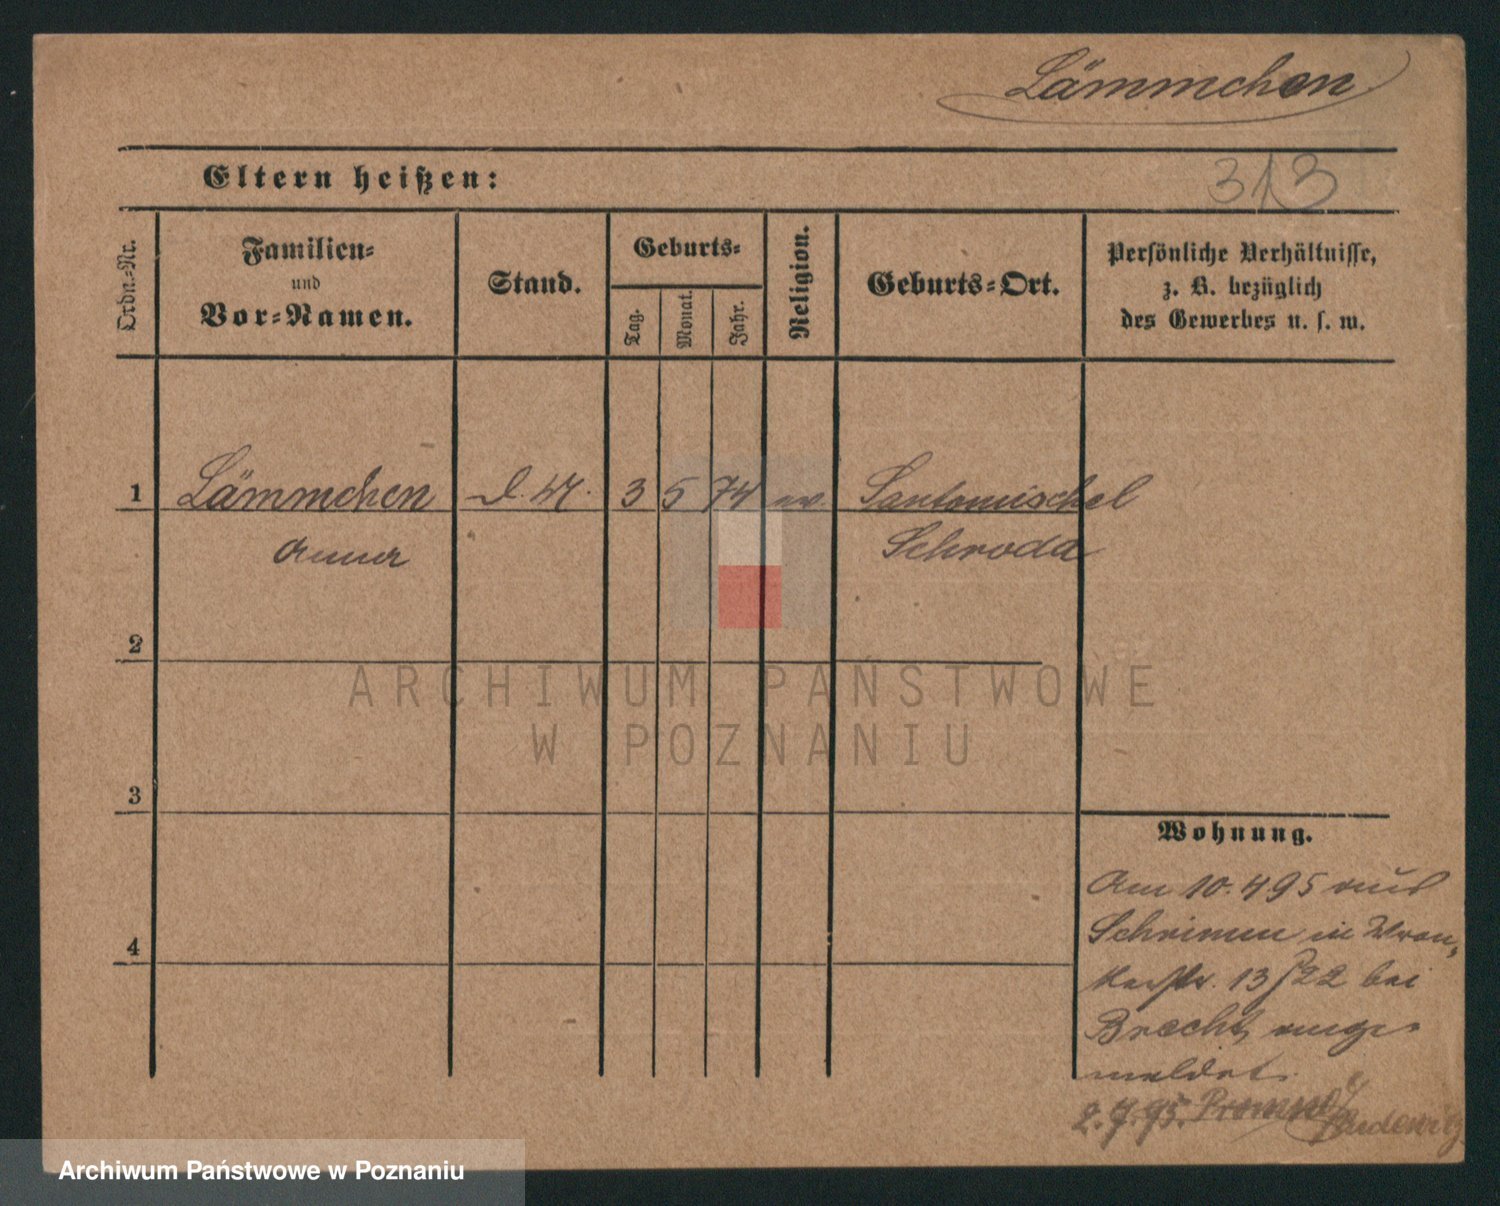 Lämmchen
313
Eltern heißen:
Ordn.-Nr.
Familien-
und
Vor-Namen.
Stand.
Geburts-
Tag.
Monat.
Jahr.
Religion.
Geburts-Ort.
Persönliche Verhältnisse,
z. B. bezüglich
des Gewerbes u. s. w.
1 Lämmchen 3 5 74 ev. Santomischel
Anna Schroda
2
ARCHIWUM PAŃSTWOWE
W POZNANIU
3
Wohnung.
Am 10.495 aus
Schrimm in Wron-
kerstr. 13/22 bei
Brecht, ange-
meldet.
4
2.7.95.
Archiwum Państwowe w Poznaniu